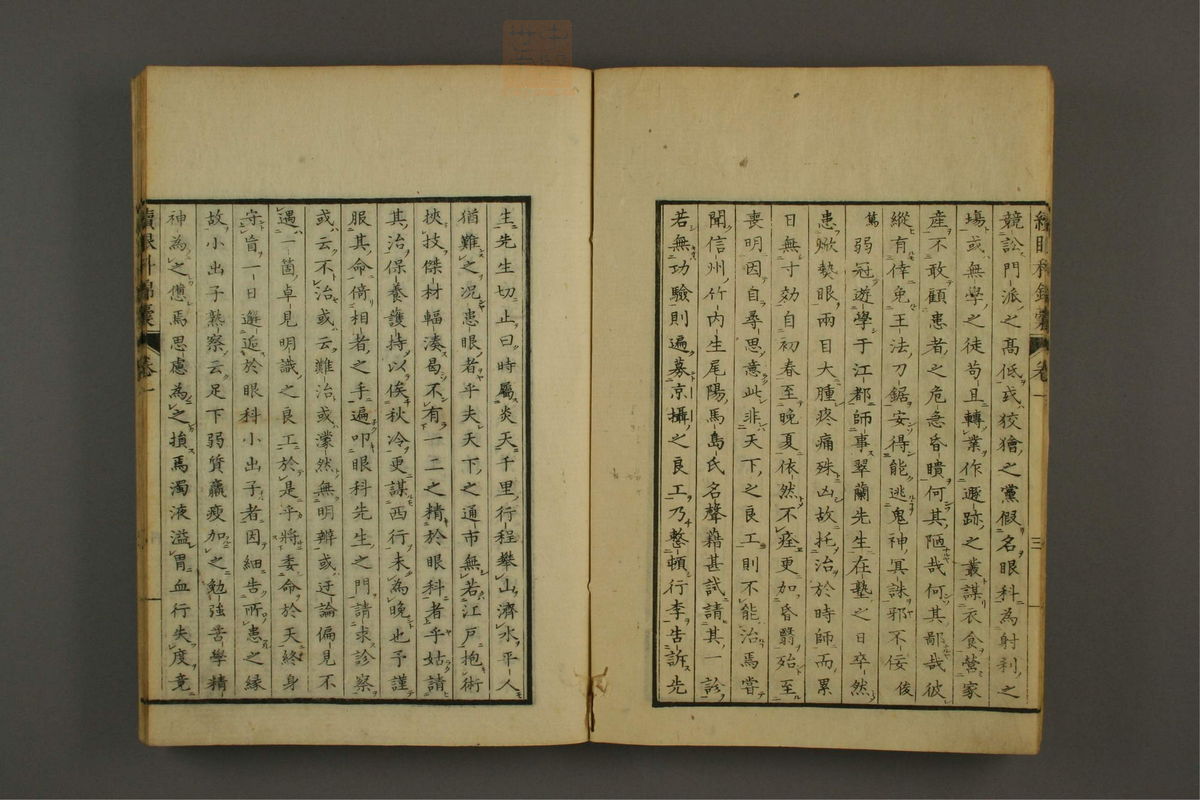 續眼科錦囊 卷一 三
競訟門派之髙低或狡獪之黨假名眼科為射利之
塲或無學之徒苟且轉業作遯跡之叢謀衣食營家
産不敢顧患者之危急昏瞶何其陋哉何其鄙哉彼
縱有倖免王法刀鋸安得能逃鬼神冥誅邪不佞俊
篤弱冠遊學于江都師事翠蘭先生在塾之日卒然
患焮熱眼兩目大腫疼痛殊凶故托治於時師而累
日無寸効自初春至晚夏依然不痊更加昏翳殆至
喪明因自尋思意此非天下之良工則不能治焉嘗
聞信州竹内生尾陽馬島氏名聲藉甚試請其一診
若無功驗則遍募京攝之良工乃整頓行李告訴先
生先生切止曰時屬炎天千里行程攀山濟水平人
猶難之况患眼者乎夫天下之通市無若江戸抱術
挾技傑材輻湊曷不有一二之精於眼科者乎姑請
其治保養護持以俟秋冷更謀西行未為晚也予謹
服其命倚相者之手遍叩眼科先生之門請求診察
或云不治或云難治或濛然無明辨或迂論偏見不
遇一箇卓見明識之良工於是乎將委命於天終身
守盲一日邂逅於眼科小出子者因細告所患之縁
故小出子熟察云足下弱質羸瘦加之勉強苦學精
神為之憊焉思慮為之損焉濁液溢胃血行失度竟
續眼科錦囊 卷一